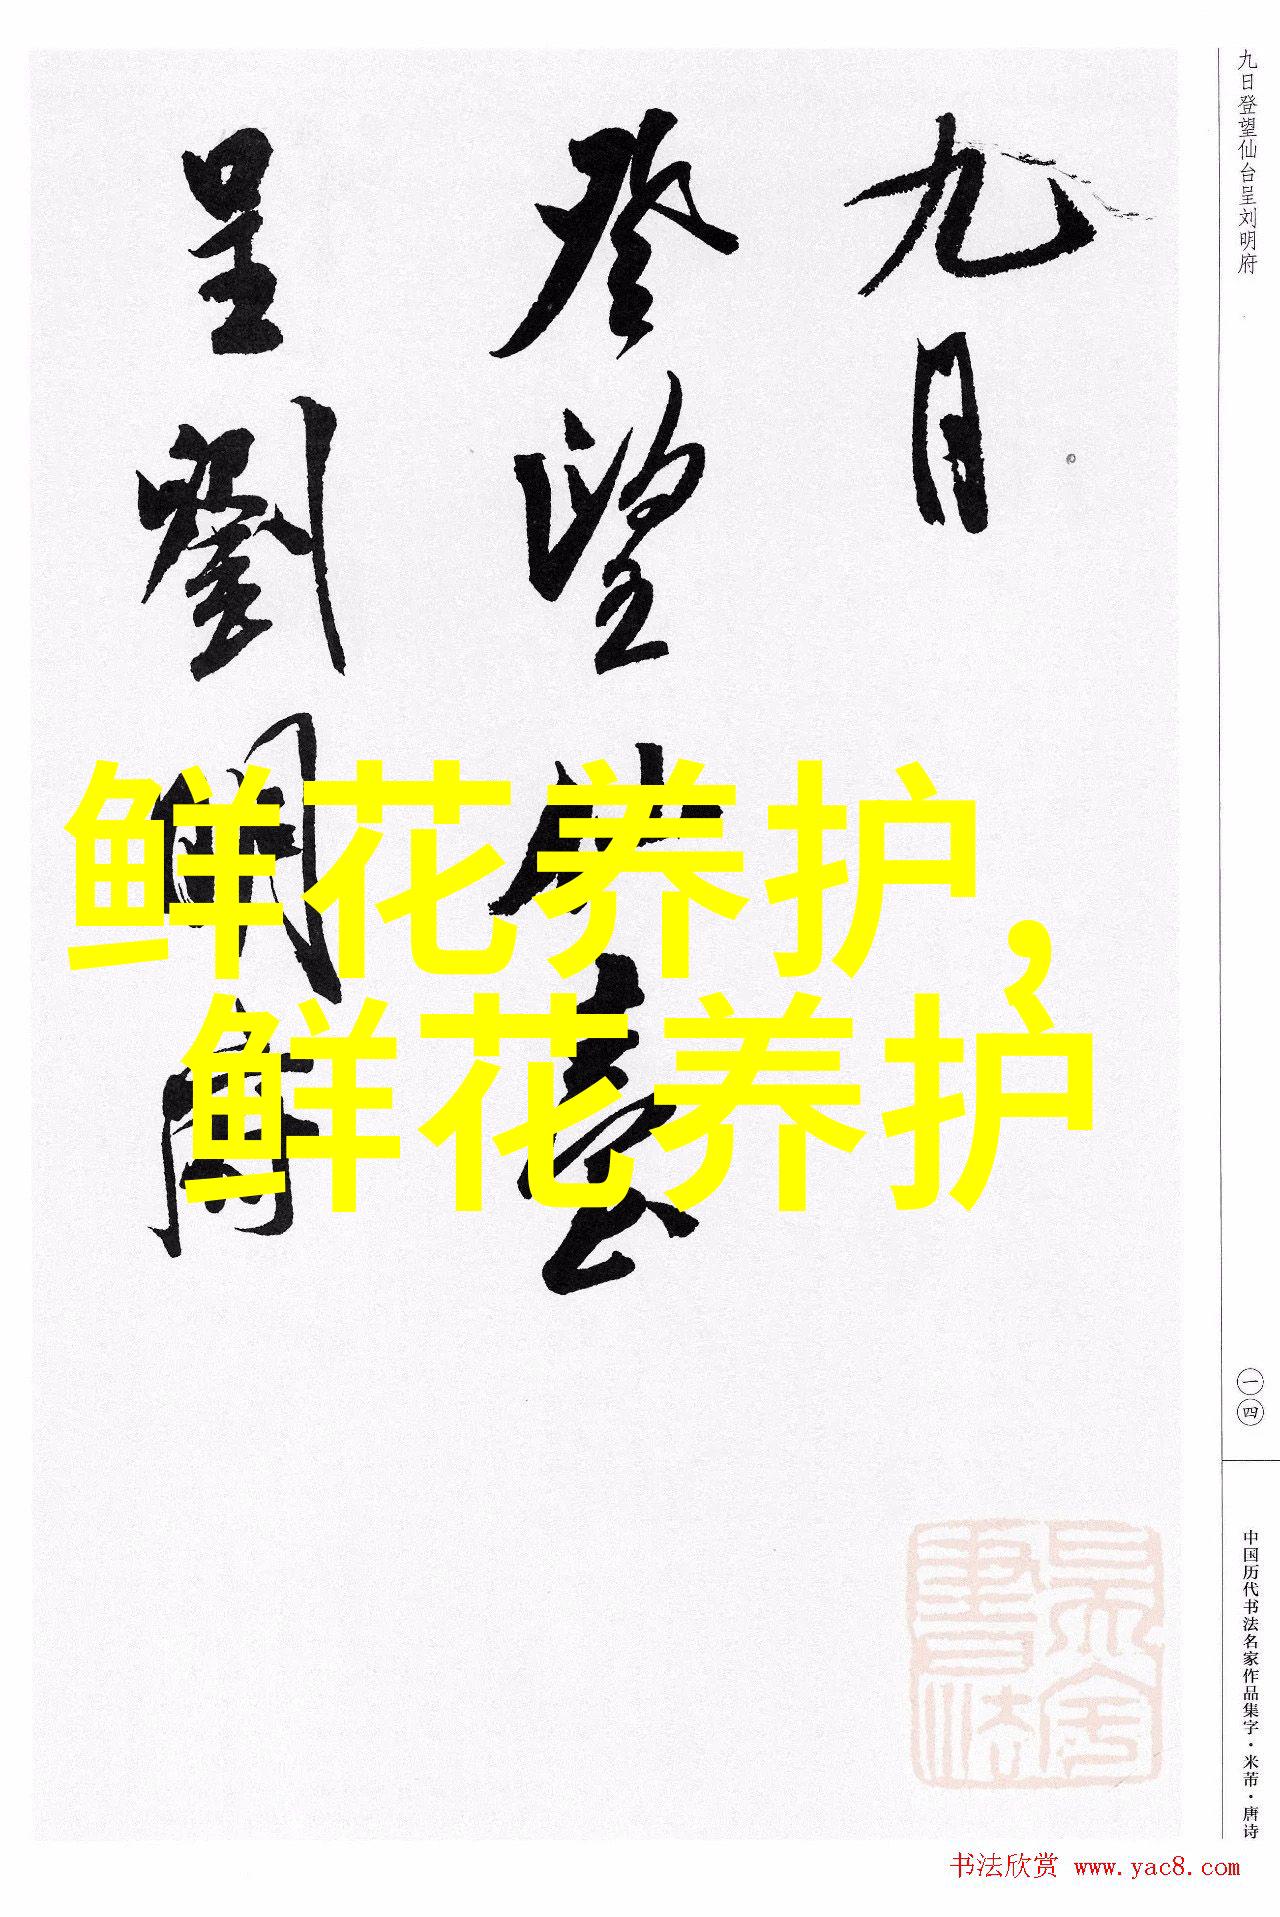 九日
登望仙臺
呈劉明府
鲜花养护,
鲜花养护
九日登望仙台呈刘明府
一四
中国历代书法名家作品集字·米芾·唐诗
书法欣赏 www.yac8.com